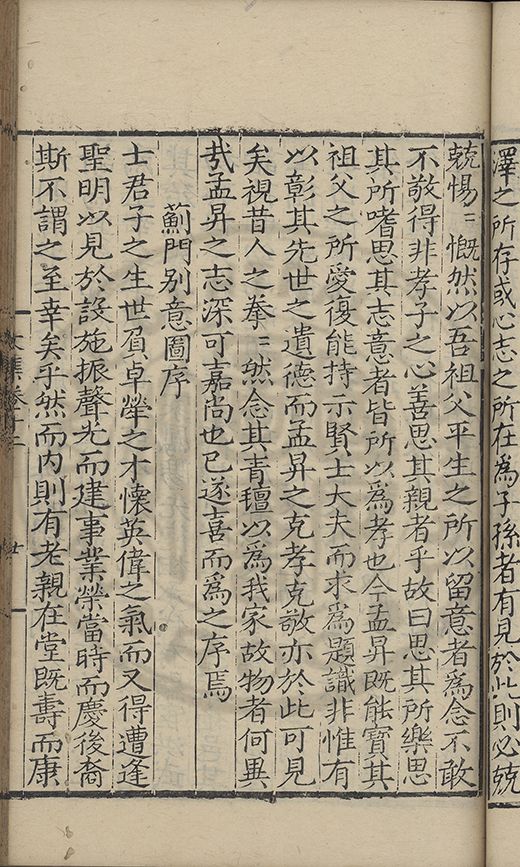 澤之所存或心志之所在為子孫者有見於此則必兢
兢惕〻慨然以吾祖父平生之所以留意者為念不敢
不敬得非孝子之心善思其親者乎故曰思其所樂思
其所嗜思其志意者皆所以為孝也今孟昇既能寶其
祖父之所愛復能持示賢士大夫而求為題識非惟有
以彰其先世之遺德而孟昇之克孝克敬亦於此可見
矣視昔人之拳〻然念其青氊以為我家故物者何異
㢤孟昇之志深可嘉尚也已遂喜而為之序焉
薊門別意圖序
士君子之生世負卓犖之才懷英偉之氣而又得遭逢
聖明以見於設施振聲光而建事業榮當時而慶後裔
斯不謂之至幸矣乎然而內則有老親在堂既壽而康